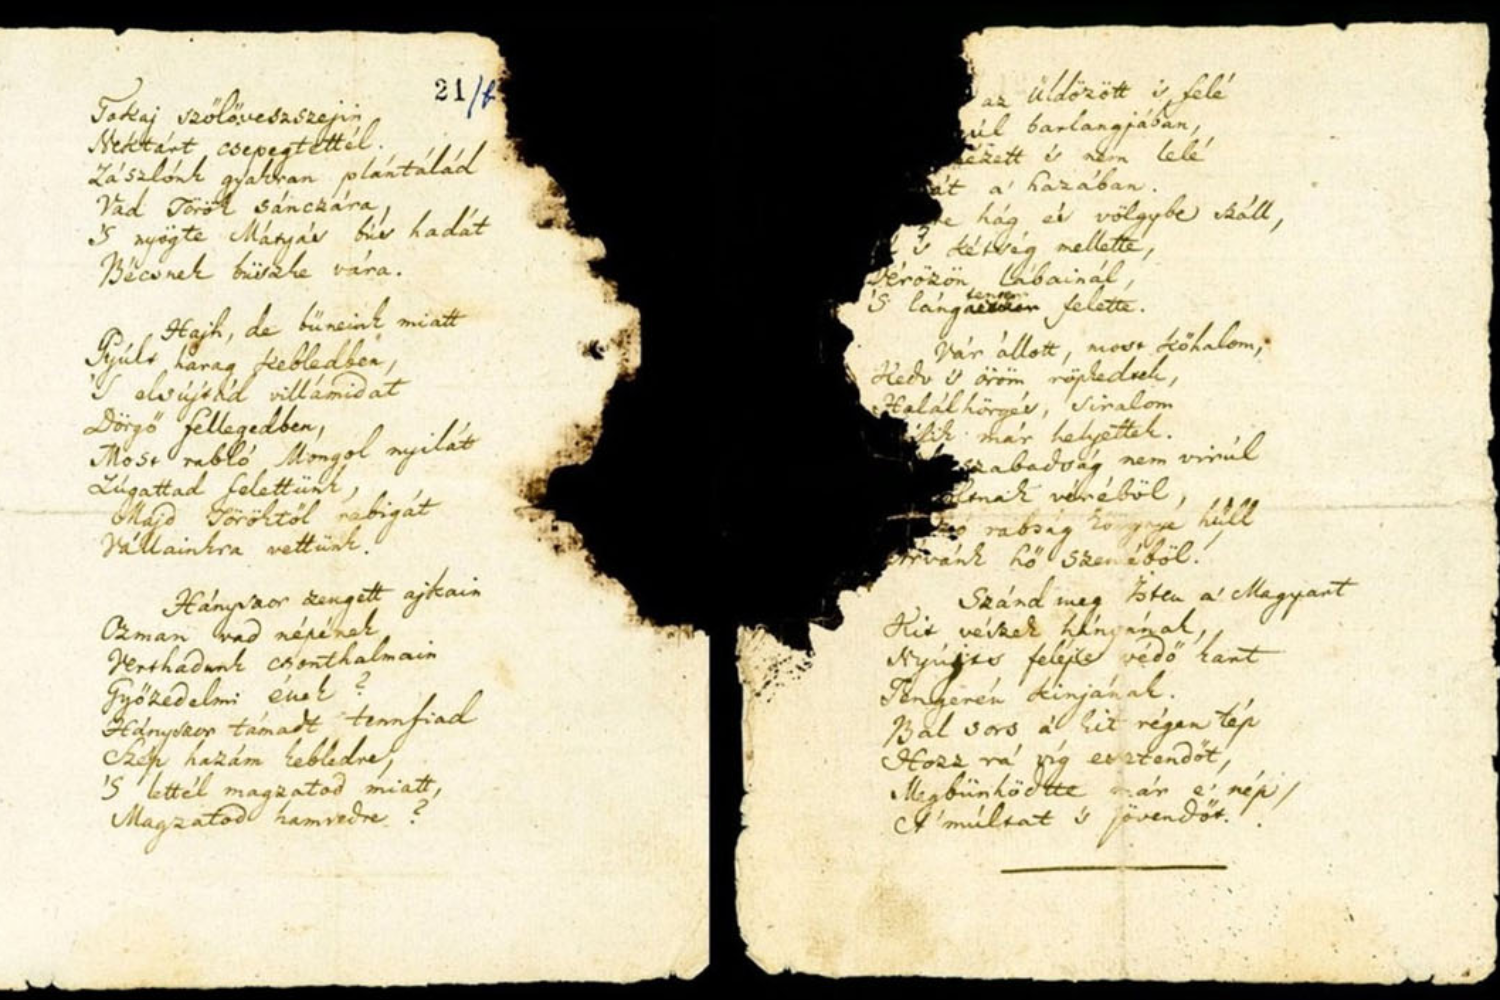 21/b
Tokaj szőlőveszszejin
Nektárt csepegtettél.
Zászlónk gyakran plántálád
Vad Török sánczára,
'S nyögte Mátyás bús hadát
Bécsnek büszke vára.
Hajh, de bűneink miatt
Gyúlt harag kebledben,
'S elsújtád villámidat
Dörgő fellegedben,
Most rabló Mongol nyilát
Zúgattad felettünk,
Majd Töröktől rabigát
Vállainkra vettünk.
Hányszor zengett ajkain
Ozman vad népének
Verthadunk csonthalmain
Győzedelmi ének?
Hányszor támadt tennfiad
Szép hazám kebledre,
'S lettél magzatod miatt,
Magzatod hamvedre?
az üldözött is felé
barlangjában,
is nem lelé
a' hazában.
hág és völgybe száll,
's kétség mellette,
Vérözön lábainál,
'S lángtenger felette.
Vár állott, most kőhalom,
Kedv 's öröm röpkedtek,
Halálhörgés, siralom
már helyettek.
szabadság nem virúl
véréből,
rabság könnye hull
Árvánk hő szeméből!
Szánd meg Isten a' Magyart
Kit vészek hányának,
Nyújts feléje védő kart
Tengerén kínjának.
Bal sors a' kit régen tép
Hozz rá víg esztendőt,
Megbünhödtte már e' nép
A' múltat 's jövendőt.